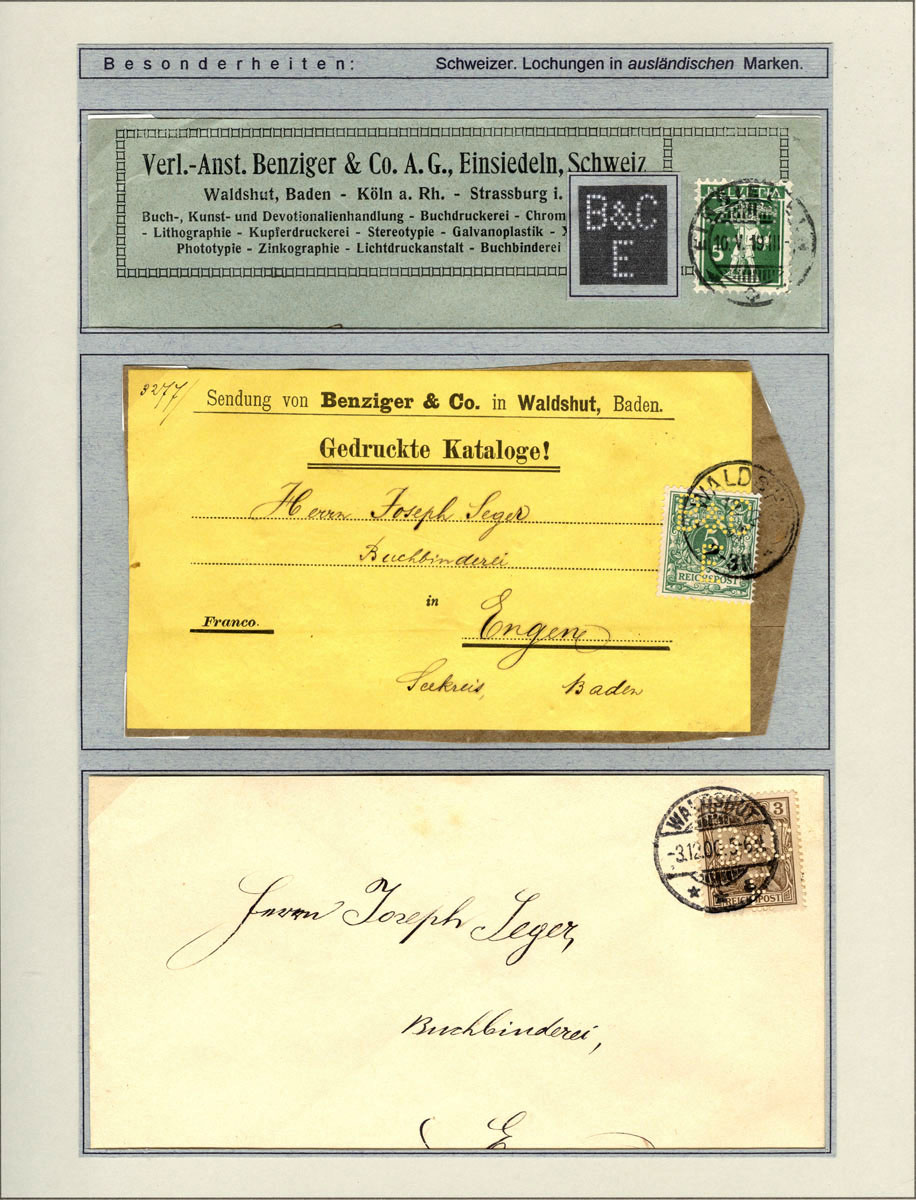 Besonderheiten: Schweizer. Lochungen in ausländischen Marken.
Verl.-Anst. Benziger & Co. A. G., Einsiedeln, Schweiz
Waldshut, Baden - Köln a. Rh. - Strassburg i.
Buch-, Kunst- und Devotionalienhandlung - Buchdruckerei - Chrom
- Lithographie - Kupferdruckerei - Stereotypie - Galvanoplastik - X
Phototypie - Zinkographie - Lichtdruckanstalt - Buchbinderei
B&C
E
HELVETIA
5
3277/
Sendung von Benziger & Co. in Waldshut, Baden.
Gedruckte Kataloge!
Herrn Joseph Seger
Buchbinderei
in
Franco.
Engen
Seekreis, Baden
WALDS
5
REICHSPOST
WALDSHUT
3
-3.12.00 5-6
REICHSPOST
Herrn Joseph Seger,
Buchbinderei,
E